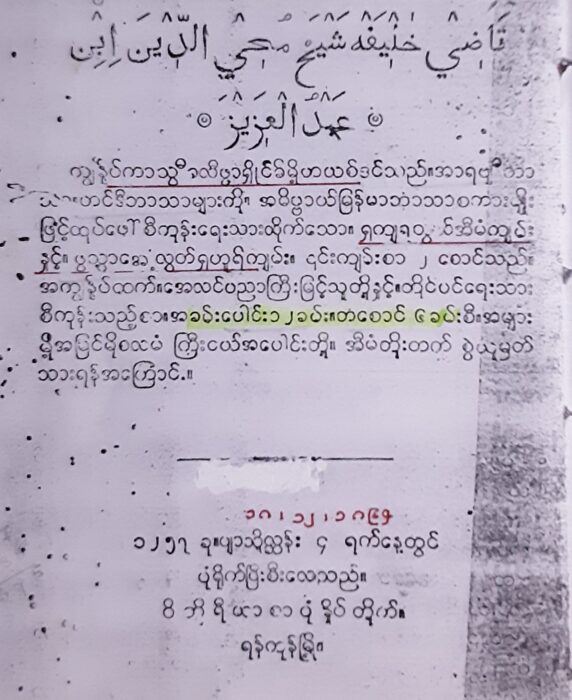 قَاضِيْ خَلِيْفَهْ شَيْخْ مُحْيِ الدِّيْنَ اِبْنِ
عَبْدُ الْعَزِيْزِ
ကျွန်ုပ်ကာသွီခလီဖွာရှိုင်ခ်မိုဟယစ်ဒင်သည်။အာရဗ္ဗီဘာ
သာ။ဟင်ဒီဘာသာများကို။ အဓိပ္ပာယ်မြန်မာဘာသာစကားမျိုး
ဖြင့်ထုပ်ဖေါ် စီကုန်းရေးသားလိုက်သော။ ရှကျရွတ္တလ်အီမံကျမ်း
နှင့်။ ဖွသ္သာအေလွတ်ရှဟူရ်ကျမ်း။ ၎င်းကျမ်းစာ ၂ စောင်သည်။
အကျွန်ုပ်ထက်။အေလင်ပညာကြီးမြင့်သူတို့နှင့်။တိုင်ပင်ရေးသား
စီကုန်းသည့်စာ။အခန်းပေါင်း၁၂ခန်း။တစောင် ၆ခန်းစီ။အများ
မို့အမြင်မိုစလမံ ကြီးငယ်အပေါင်းတို့။ အီမံတိုးတက် စွဲယူမှတ်
သားရန်အကြောင်း။
၁၈၊၁၂၊၁၈၉၅
၁၂၅၇ ခု။ပျာသိုလ္ဆန်း ၄ ရက်နေ့တွင်
ပုံရိုက်ပြီးစီးလေသည်။
ဝိ ဘိ ရိ ယာ စာ ပုံ နှိပ် တိုက်။
ရန်ကုန်မြို့။